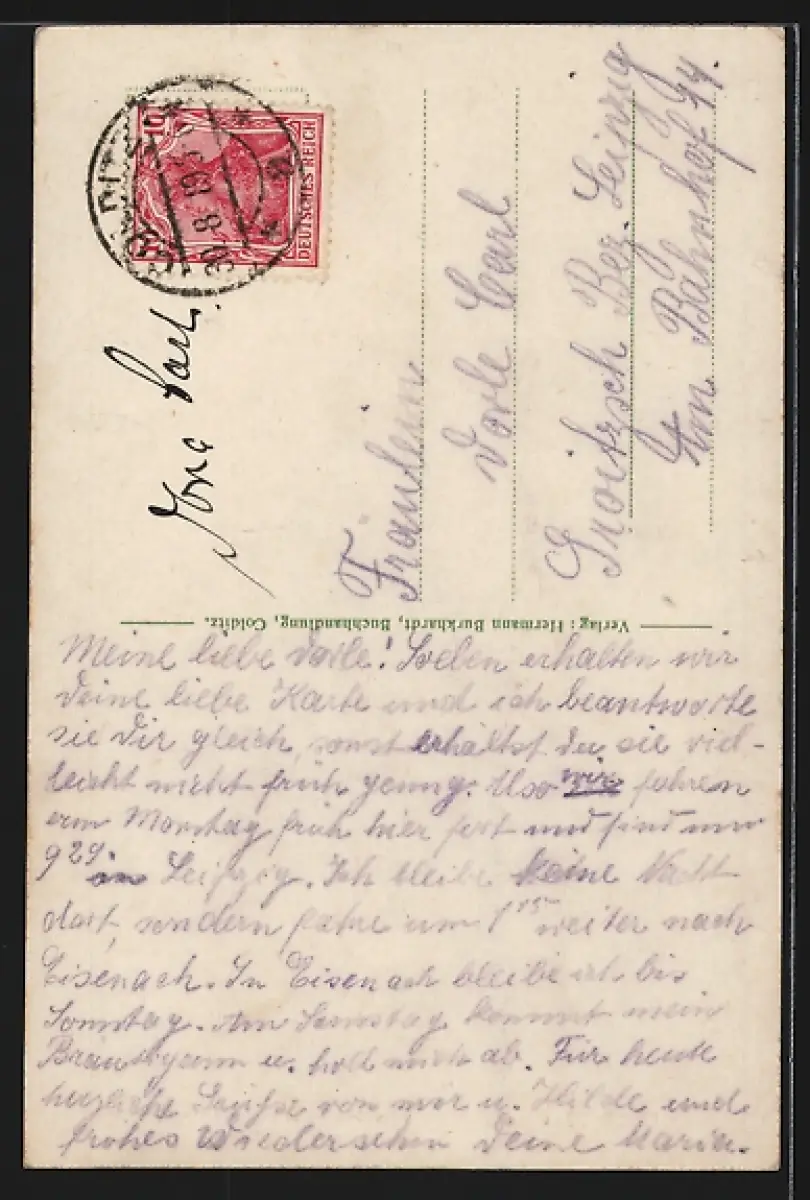 10
DEUTSCHES REICH
30.8.19
Fräulein
Dorle Carl
Groitzsch Bez. Leipzig
Am Bahnhof 44.
Verlag: Hermann Burkhardt, Buchhandlung, Colditz.
Meine liebe Dorle! Soeben erhalten wir
deine liebe Karte und ich beantworte
sie dir gleich, sonst erhältst du sie viel-
leicht nicht früh genug. Also wir fahren
am Montag früh hier fort und sind um
9 29 in Leipzig. Ich bleibe keine Nacht
dort, sondern fahre um 1 15 weiter nach
Eisenach. In Eisenach bleibe ich bis
Sonntag. Am Samstag kommt mein
Bräutigam u. holt mich ab. Für heute
herzliche Grüße von mir u. Hilde und
frohes Wiedersehn Deine Maria.